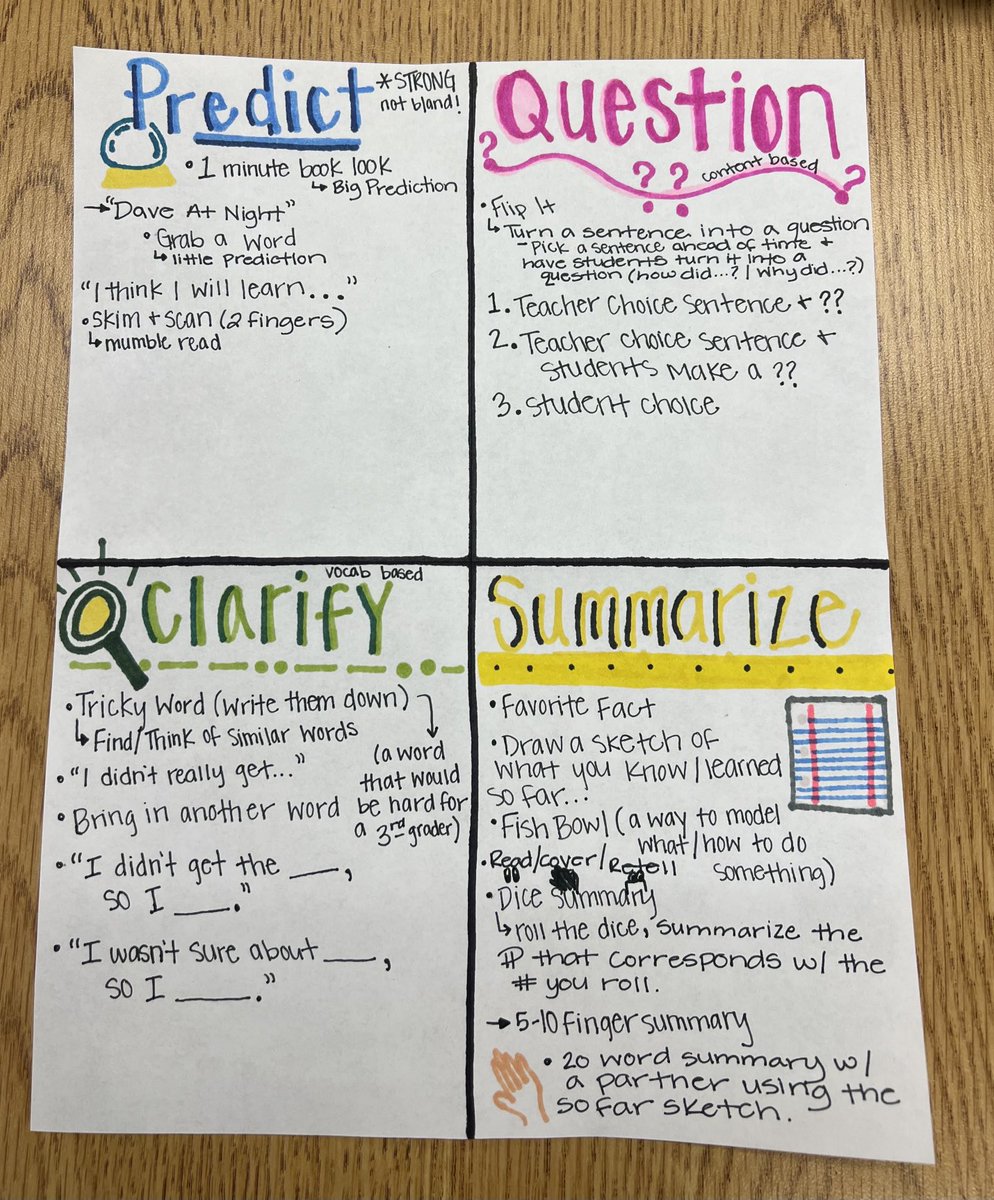 Predict
*STRONG
not bland!
• 1 minute book look
↳ Big Prediction
→ "Dave At Night"
• Grab a Word
↳ little Prediction
"I think I will learn..."
• Skim + scan (2 fingers)
↳ mumble read
Question
? ? ? ?
content based
• Flip It
↳ Turn a sentence into a question
- Pick a sentence ahead of time +
have students turn it into a
question (how did...? / why did...?)
1. Teacher Choice Sentence + ??
2. Teacher choice sentence +
students make a ??
3. Student choice
Clarify
vocab based
• Tricky Word (write them down)
↳ Find/Think of similar words
(a word
that would
be hard for
a 3rd grader)
• "I didn't really get..."
• Bring in another word
• "I didn't get the ___,
so I ___."
• "I wasn't sure about ___,
so I ___."
Summarize
• Favorite Fact
• Draw a sketch of
what you know/learned
so far...
• Fish Bowl (a way to model
what/how to do
something)
• Read/cover/Retell
• Dice summary
↳ roll the dice, summarize the
¶ that corresponds w/ the
# you roll.
→ 5-10 Finger summary
• 20 word summary w/
a partner using the
so far sketch.